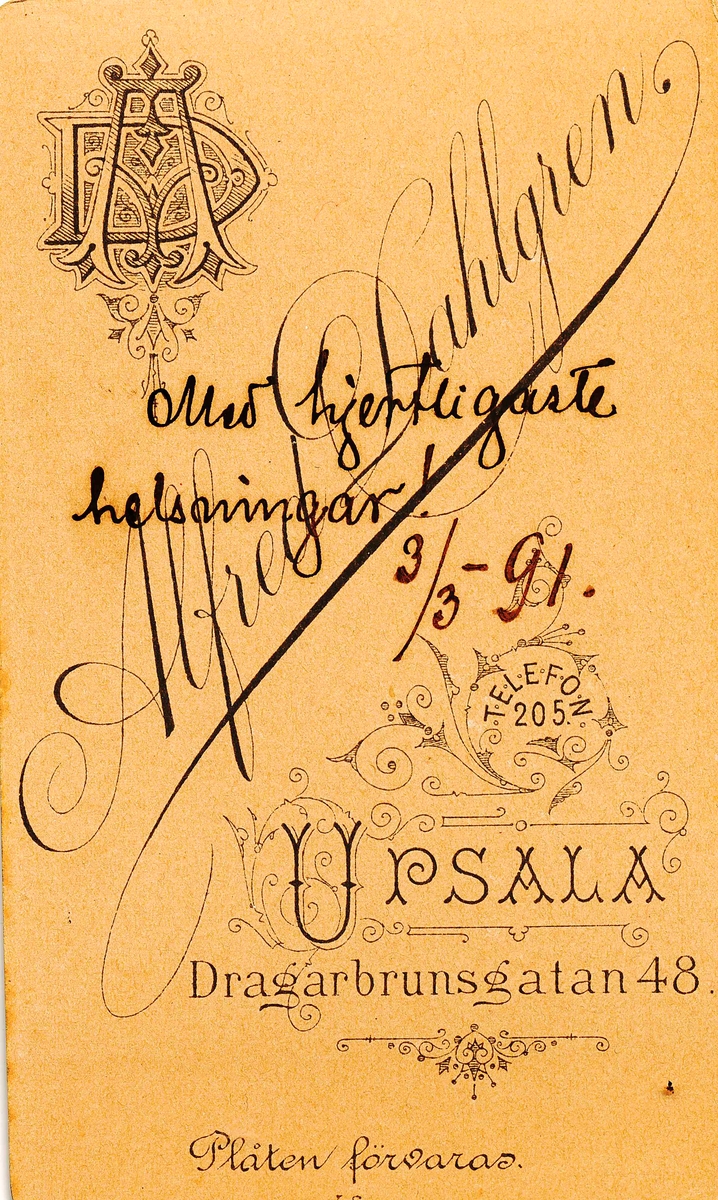 AD
Alfred Dahlgren.
Med hjertligaste
helsningar!
3/3-91.
TELEFON
205.
UPSALA
Dragarbrunsgatan 48.
Plåten förvaras.